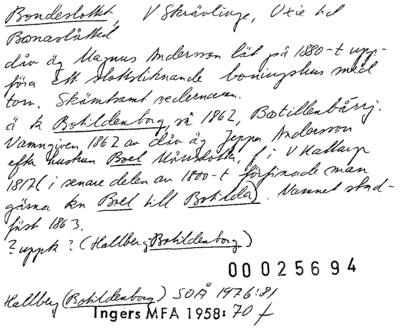 Bondeslottet, V Skrävlinge, Oxie hd
Bonaslåtted
dåv äg Magnus Andersson lät på 1880-t upp-
föra ett slottsliknande boningshus med
torn. Skämtsamt vedernamn.
ä ta Botildenborg så 1862, Botillenbårrj.
Namngiven 1862 av dåv äg Jeppa Andersson
efter hustrun Boel Månsdotter, f i V Kattarp
1817 (i senare delen av 1800-t förfinade man
gärna kn Boel till Botilda). Namnet stad-
fäst 1863.
? uppk ? (Hallberg Botildenborg)
00025694
Hallberg (Botildenborg) SOÅ 1976:81
Ingers MFA 1958: 70 f